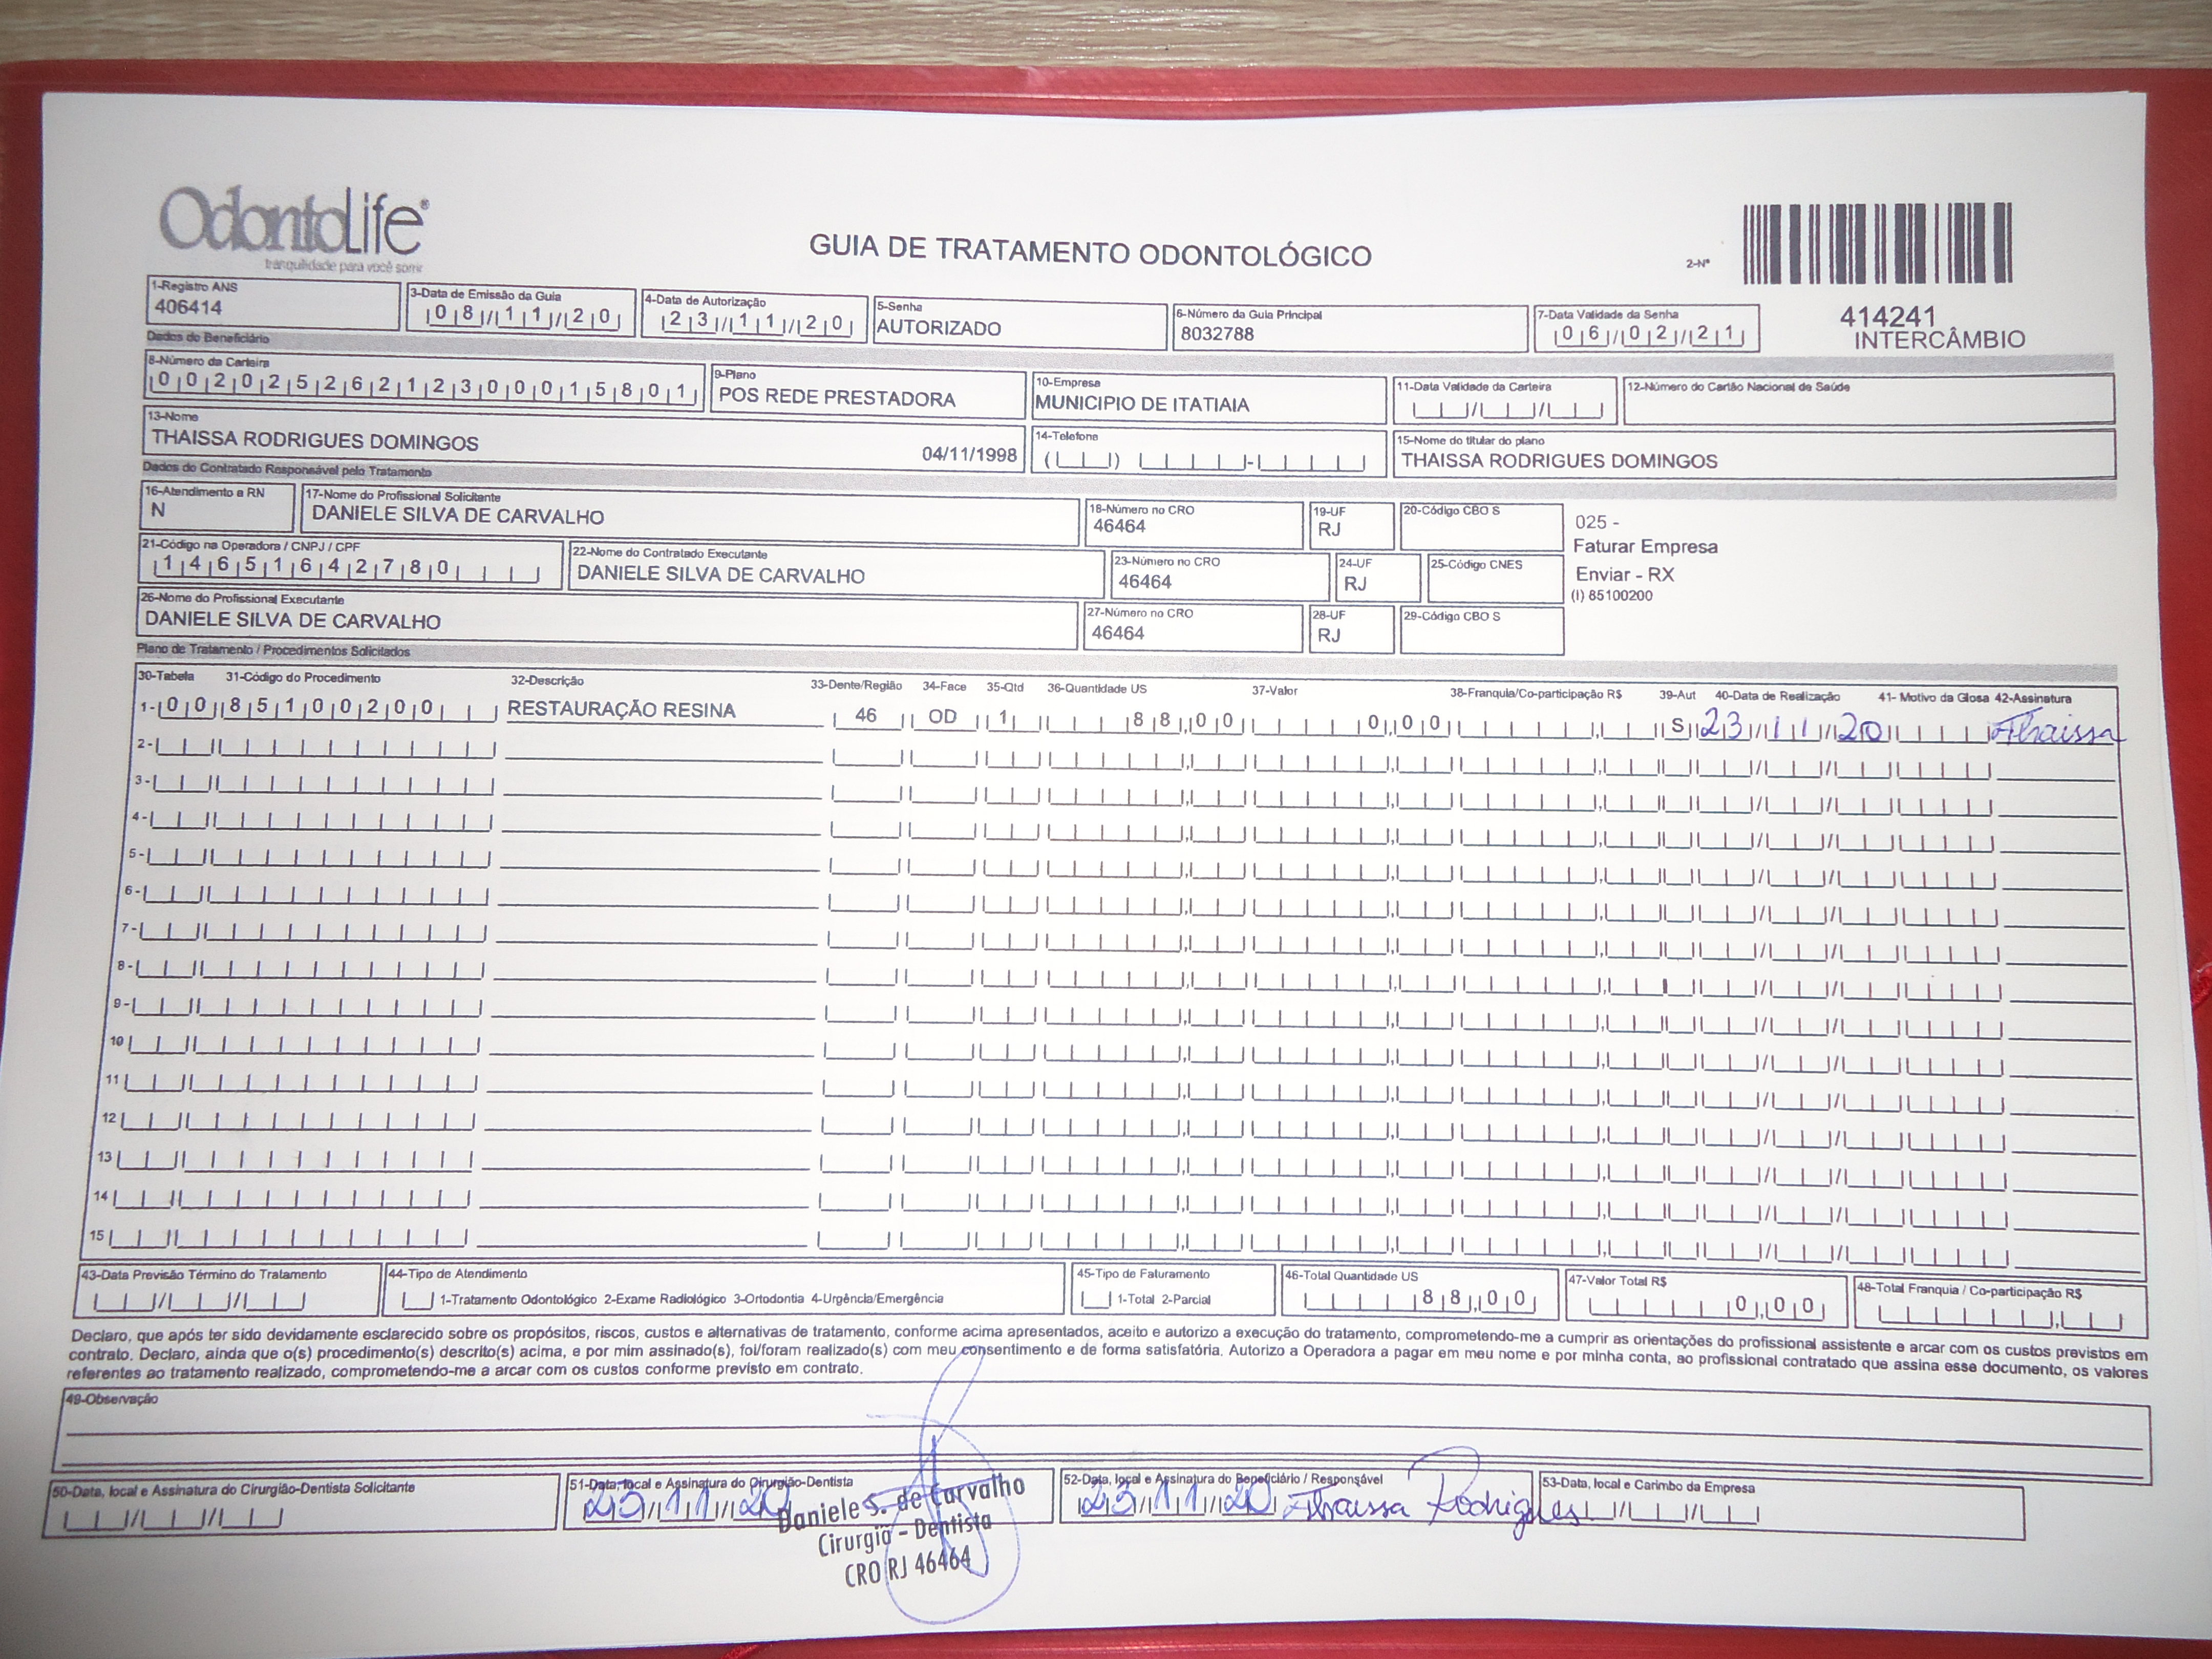 OdontoLife®
tranquilidade para você sorrir
GUIA DE TRATAMENTO ODONTOLÓGICO
2-Nº
414241
INTERCÂMBIO
1-Registro ANS
406414
3-Data de Emissão da Guia
08/11/20
4-Data de Autorização
23/11/20
5-Senha
AUTORIZADO
6-Número da Guia Principal
8032788
7-Data Validade da Senha
06/02/21
Dados do Beneficiário
8-Número da Carteira
00202526212300015801
9-Plano
POS REDE PRESTADORA
10-Empresa
MUNICIPIO DE ITATIAIA
11-Data Validade da Carteira
12-Número do Cartão Nacional de Saúde
13-Nome
THAISSA RODRIGUES DOMINGOS 04/11/1998
14-Telefone
15-Nome do titular do plano
THAISSA RODRIGUES DOMINGOS
Dados do Contratado Responsável pelo Tratamento
16-Atendimento a RN
N
17-Nome do Profissional Solicitante
DANIELE SILVA DE CARVALHO
18-Número no CRO
46464
19-UF
RJ
20-Código CBO S
025 -
Faturar Empresa
Enviar - RX
(I) 85100200
21-Código na Operadora / CNPJ / CPF
14651642780
22-Nome do Contratado Executante
DANIELE SILVA DE CARVALHO
23-Número no CRO
46464
24-UF
RJ
25-Código CNES
26-Nome do Profissional Executante
DANIELE SILVA DE CARVALHO
27-Número no CRO
46464
28-UF
RJ
29-Código CBO S
Plano de Tratamento / Procedimentos Solicitados
30-Tabela 31-Código do Procedimento 32-Descrição 33-Dente/Região 34-Face 35-Qtd 36-Quantidade US 37-Valor 38-Franquia/Co-participação R$ 39-Aut 40-Data de Realização 41- Motivo da Glosa 42-Assinatura
1- 00 85100200 RESTAURAÇÃO RESINA 46 OD 1 88,00 0,00 S 23/11/20 Thaissa
2-
3-
4-
5-
6-
7-
8-
9-
10
11
12
13
14
15
43-Data Previsão Término do Tratamento
44-Tipo de Atendimento
1-Tratamento Odontológico 2-Exame Radiológico 3-Ortodontia 4-Urgência/Emergência
45-Tipo de Faturamento
1-Total 2-Parcial
46-Total Quantidade US
88,00
47-Valor Total R$
0,00
48-Total Franquia / Co-participação R$
Declaro, que após ter sido devidamente esclarecido sobre os propósitos, riscos, custos e alternativas de tratamento, conforme acima apresentados, aceito e autorizo a execução do tratamento, comprometendo-me a cumprir as orientações do profissional assistente e arcar com os custos previstos em
contrato. Declaro, ainda que o(s) procedimento(s) descrito(s) acima, e por mim assinado(s), foi/foram realizado(s) com meu consentimento e de forma satisfatória. Autorizo a Operadora a pagar em meu nome e por minha conta, ao profissional contratado que assina esse documento, os valores
referentes ao tratamento realizado, comprometendo-me a arcar com os custos conforme previsto em contrato.
49-Observação
50-Data, local e Assinatura do Cirurgião-Dentista Solicitante
51-Data, local e Assinatura do Cirurgião-Dentista
23/11/20
Daniele S. de Carvalho
Cirurgiã - Dentista
CRO RJ 46464
52-Data, local e Assinatura do Beneficiário / Responsável
23/11/20 Thaissa Rodrigues
53-Data, local e Carimbo da Empresa